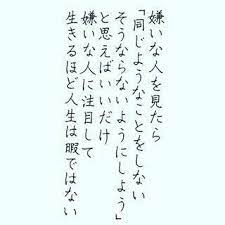 嫌いな人を見たら
「同じようなことをしない
そうならないようにしよう」
と思えばいいだけ
嫌いな人に注目して
生きるほど人生は暇ではない